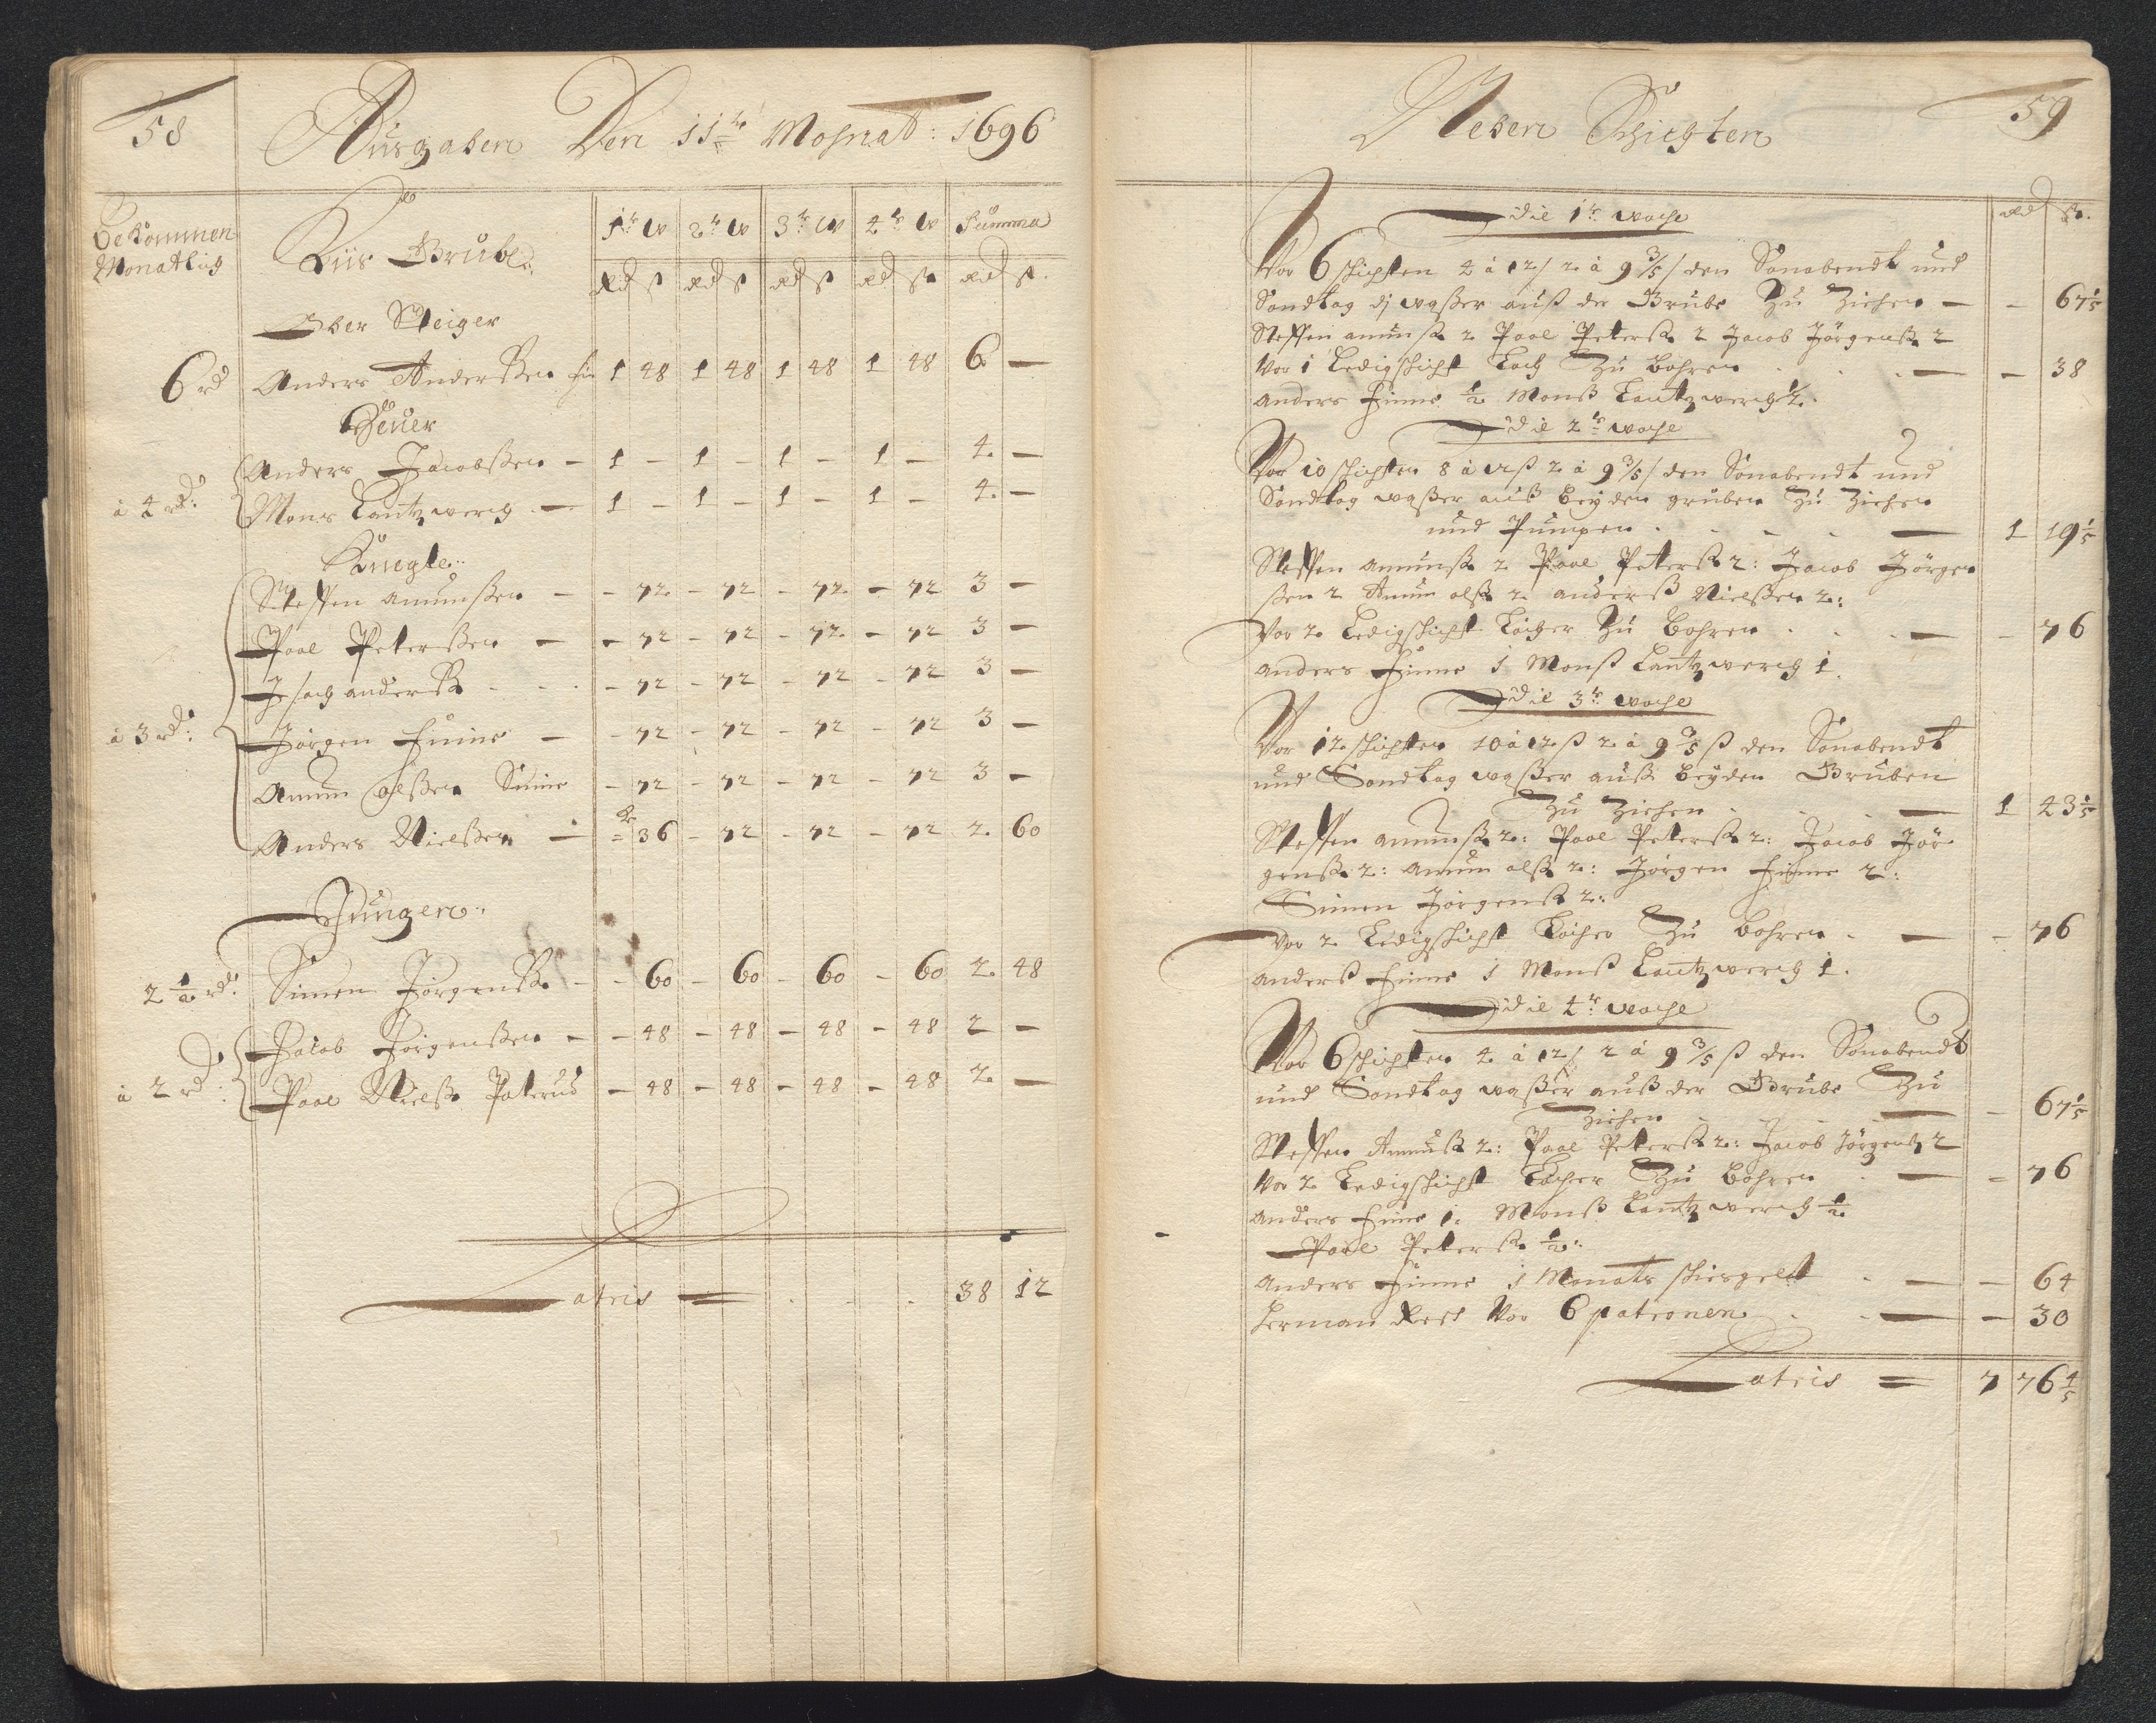 58
Ausgaben Den 11te Mohnat: 1696
Bekommen
Monatlich
Kiis Grube:
1te W 2te W 3te W 4te W Summa
rd ß rd ß rd ß rd ß rd ß
Ober Steiger
6 rd Anders Anderßen fin 1 48 1 48 1 48 1 48 6 —
Heuer
Anders Jacobßen — 1 — 1 — 1 — 1 — 4. —
à 4 rd: Mons Lantzwerg — 1 — 1 — 1 — 1 — 4. —
Knegte:
Steffen amunßen — - 72 - 72 - 72 - 72 3 —
Poul Peterßen — - 72 - 72 - 72 - 72 3 —
Isach anderß - 72 - 72 - 72 - 72 3 —
à 3 rd: Jörgen Finne — - 72 - 72 - 72 - 72 3 —
Amun olßen - 72 - 72 - 72 - 72 3 —
Anders Nielßen — = 36 - 72 - 72 - 72 2. 60
Jungen:
2 1/2 rd: Simen Jörgenß — - 60 - 60 - 60 - 60 2. 48
Jacob Jörgenßen — - 48 - 48 - 48 - 48 2 —
à 2 rd: Poul Nielß - 48 - 48 - 48 - 48 2. —
Latris = 38 12
59
Neben Schichten
rd ß.
Die 1te woche
Vor 6 schichten 4 à 12/ 2 à 9 3/5/ den Sonabendt und
Sondtag dz waßer auß der Grube Zu Ziehen — - 67 1/5
Steffen amunß 2 Poul Peterß 2 Jacob Jörgenß 2
Vor 1 Ledigschicht Loch Zu bohren — - 38
anders Finne 1/2 Monß Lantzwerg 1/2.
Die 2te woche
Vor 10 schichten 8 à 12 ß 2 à 9 3/5/ den Sonabendt und
Sondtag waßer auß beyden gruben Zu Ziehen
und Pumpen — 1 19 1/5
Steffen amunß 2 Poul Peterß 2: Jacob Jörgen
ßen 2 Amun olß 2 anderß Nielßen 2:
Vor 2 Ledigschicht Löcher Zu bohren — - 76
anders Finne 1 Monß Lantzwerg 1.
Die 3te woche
Vor 12 schichten 10 à 12 ß 2 à 9 3/5 ß den Sonabendt
und Sondtag waßer auß beyden Gruben
Zu Ziehen — 1 43 1/5
Steffen amunß 2: Poul Peterß 2: Jacob Jör
genß 2: amun olß 2: Jörgen Finne 2:
Simen Jörgenß 2:
Vor 2 Ledigschicht Löcher Zu bohren — - 76
anderß Finne 1 Monß Lantzwerg 1.
Die 4te woche
Vor 6 schichten 4 à 12/ 2 à 9 3/5 ß den Sonabendt
und Sondtag waßer auß der Grube Zu
Ziehen — - 67 1/5
Steffen Amunß 2: Poul Peterß 2: Jacob Jörgenß 2
Vor 2 Ledigschicht Löcher Zu bohren — - 76
anders Finne 1. Monß Lantzwerg 1/2
Poul Peterß 1/2:
Anders Finne 1 Monats schiesgelt — — 64
Herman Vor 6 patronen — — 30
Latris = 7 76 4/5